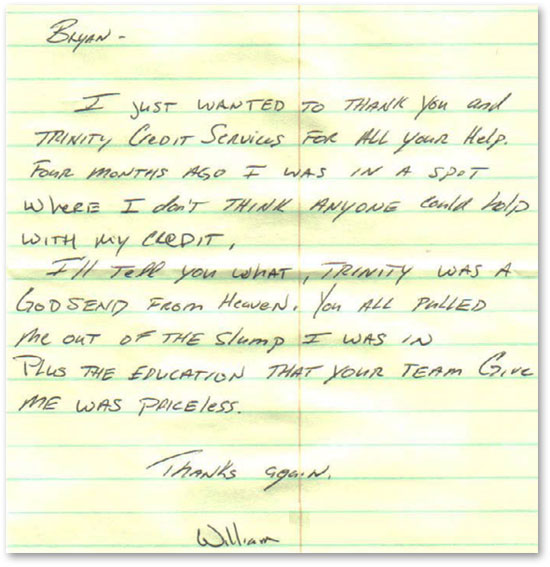 Bryan -
I just wanted to thank you and
Trinity Credit Services for all your help.
Four months ago I was in a spot
where I don't think anyone could help
with my credit.
I'll tell you what, Trinity was a
Godsend from Heaven. You all pulled
me out of the slump I was in
Plus the education that your team Give
me was priceless.
Thanks again.
William